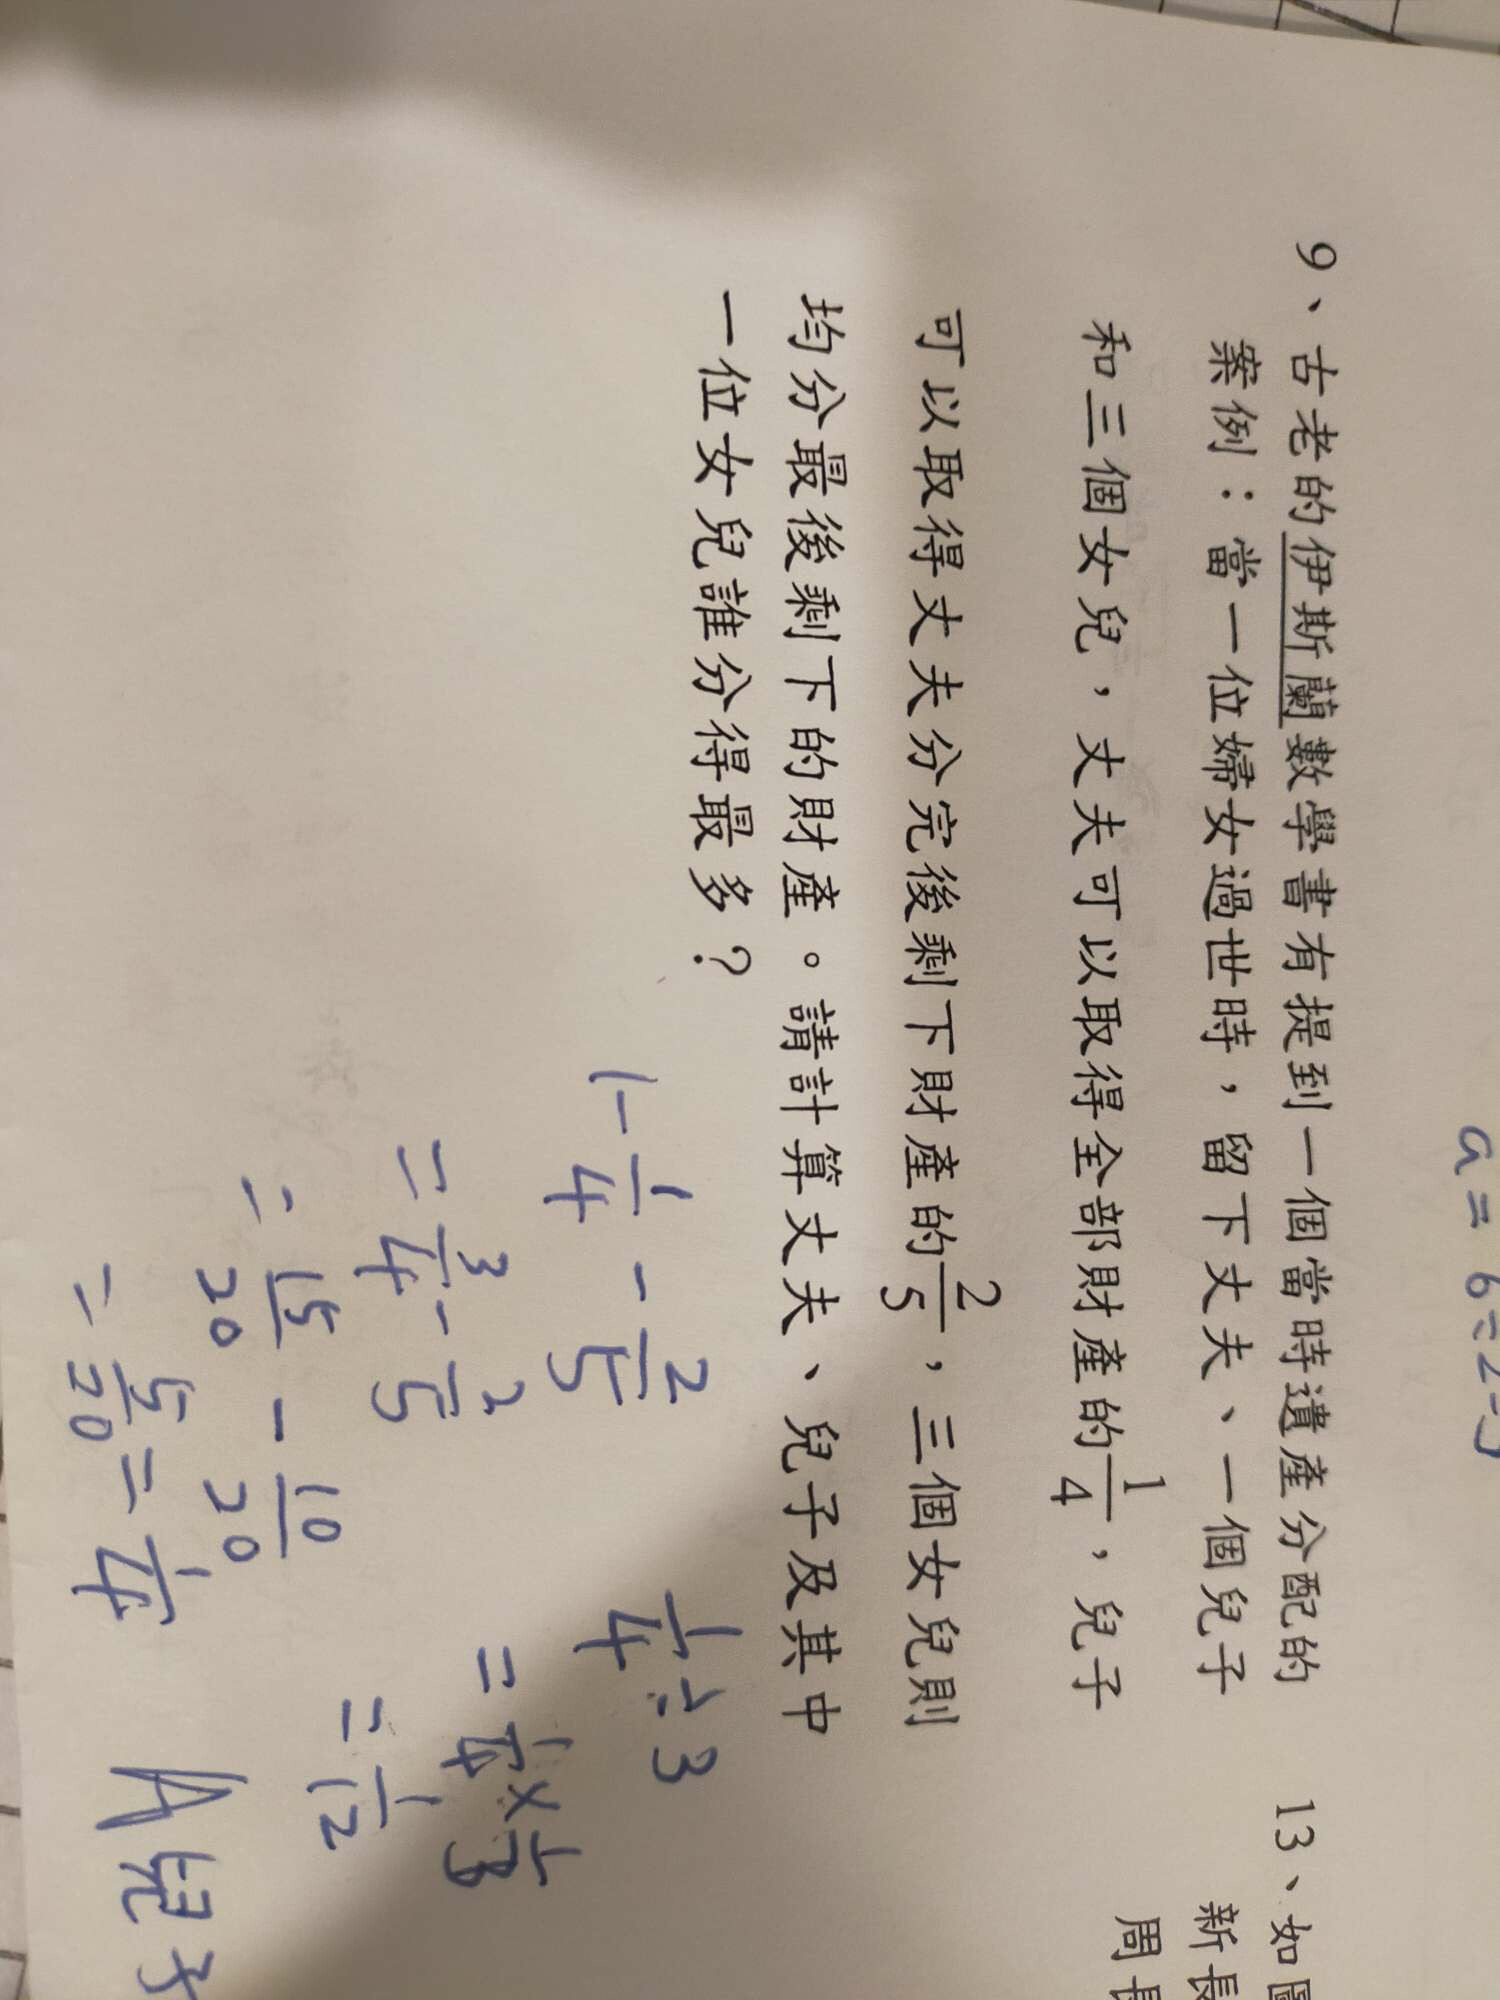 a= b÷2=5
9、古老的伊斯蘭數學書有提到一個當時遺產分配的
案例：當一位婦女過世時，留下丈夫、一個兒子
和三個女兒，丈夫可以取得全部財產的1/4，兒子
可以取得丈夫分完後剩下財產的2/5，三個女兒則
均分最後剩下的財產。請計算丈夫、兒子及其中
一位女兒誰分得最多？
1-1/4-2/5
=3/4-2/5
=15/20-10/20
=5/20=1/4
1/4÷3
=1/4×1/3
=1/12
A兒子
13、如圖
新長
周長